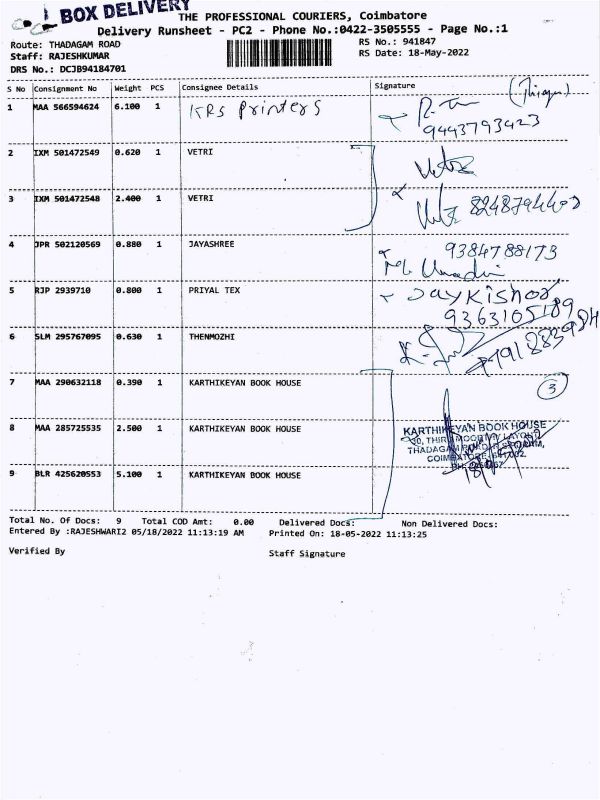 BOX DELIVERY
THE PROFESSIONAL COURIERS, Coimbatore
Delivery Runsheet - PC2 - Phone No.:0422-3505555 - Page No.:1
Route: THADAGAM ROAD
RS No.: 941847
Staff: RAJESHKUMAR
RS Date: 18-May-2022
DRS No.: DCJB94184701
S No Consignment No Weight PCS Consignee Details Signature
1 MAA 566594624 6.100 1 KRS Printers
9443793423
2 IXM 501472549 0.620 1 VETRI
3 IXM 501472548 2.400 1 VETRI
4 JPR 502120569 0.880 1 JAYASHREE 9384788173
5 RJP 2939710 0.800 1 PRIYAL TEX Jay Kishor
9363105189
6 SLM 295767095 0.630 1 THENMOZHI
7 MAA 290632118 0.390 1 KARTHIKEYAN BOOK HOUSE 3
8 MAA 285725535 2.500 1 KARTHIKEYAN BOOK HOUSE
KARTHIKEYAN BOOK HOUSE
9 BLR 425620553 5.100 1 KARTHIKEYAN BOOK HOUSE
Total No. Of Docs: 9 Total COD Amt: 0.00 Delivered Docs: Non Delivered Docs:
Entered By :RAJESHWARI2 05/18/2022 11:13:19 AM Printed On: 18-05-2022 11:13:25
Verified By Staff Signature